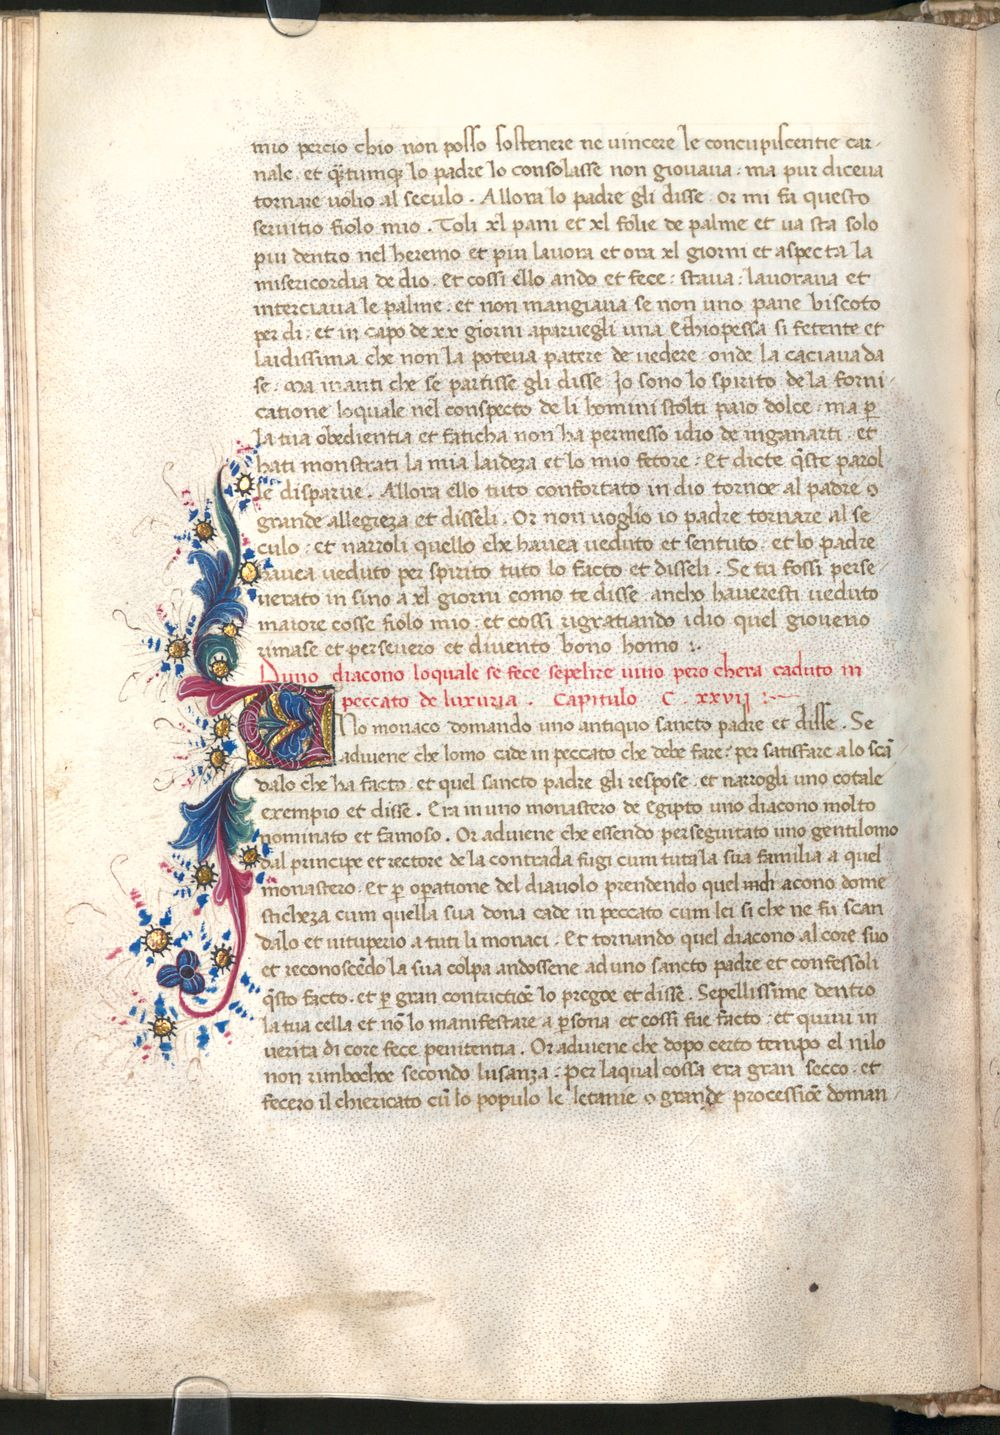 mio percio chio non posso sostenere ne vincere le concupiscentie car-
nale. et q̃tumq̃ lo padre lo consolasse non giovava. ma pur diceva
tornare volio al seculo. Allora lo padre gli disse. or mi fa questo
servitio fiolo mio. Toli xl pani et xl folie de palme et va sta solo
piu dentro nel heremo et piu lavora et ora xl giorni et aspecta la
misericordia de dio. Et cossi ello ando et fece. stava: lavorava et
interciava le palme. et non mangiava se non uno pane biscoto
per di. et in capo de xx giorni aparvegli una Ethiopessa si fetente et
laidissima che non la poteva patere de vedere. onde la caciava da
se. Ma inanti che se partisse gli disse. Io sono lo spirito de la forni
catione loquale nel conspecto de li homini stolti paio dolce. ma p̱
la tua obedientia et faticha non ha permesso idio de inganarti. et
hati monstrati la mia laideza et lo mio fetore. Et dicte q̃ste parol
le disparue. Allora ello tuto confortato in dio tornoe al padre o
grande allegreza et disseli. Or non voglio io padre tornare al se
culo. et narroli quello che havea veduto et sentuto. et lo padre
havea veduto per spirito tuto lo facto et disseli. Se tu fossi perse
verato in sino a xl giorni como te disse. ancho haveresti veduto
maiore cosse fiolo mio. et cossi rigratiando idio quel gioveno
rimase et persevero et divento bono homo :.
Duno diacono loquale se fece sepelire vivo pero chera caduto in
peccato de luxuria. Capitulo C. xxvij :-
No monaco domando uno antiquo sancto padre et disse. Se
adviene che lomo cade in peccato che debe fare. per satisfare a lo scã
dalo che ha facto. et quel sancto padre gli respose. et narrogli uno cotale
exempio et disse. Era in uno monastero de Egipto uno diacono molto
nominato et famoso. Or adviene che essendo perseguitato uno gentilomo
dal principe et rectore de la contrada fugi cum tuta la sua familia a quel
monastero. Et p̱ op̱atione del diavolo prendendo quel indi acono dome
sticheza cum quella sua dona cade in peccato cum lei si che ne fu scan
dalo et vituperio a tuti li monaci. Et tornando quel diacono al core suo
et reconoscẽdo la sua colpa andossene ad uno sancto padre et confessoli
q̃sto facto. et p̱ gran contrictiõe lo pregoe et disse. Sepellissime dentro
la tua cella et nõ lo manifestare a p̱sona et cossi fue facto. et quivi in
verita di core fece penitentia. Or adviene che dopo certo tempo el nilo
non rimbochoe secondo lusanza. per laqual cossa era gran secco. et
fecero il chiericato cũ lo populo le letanie o grande processiõe doman